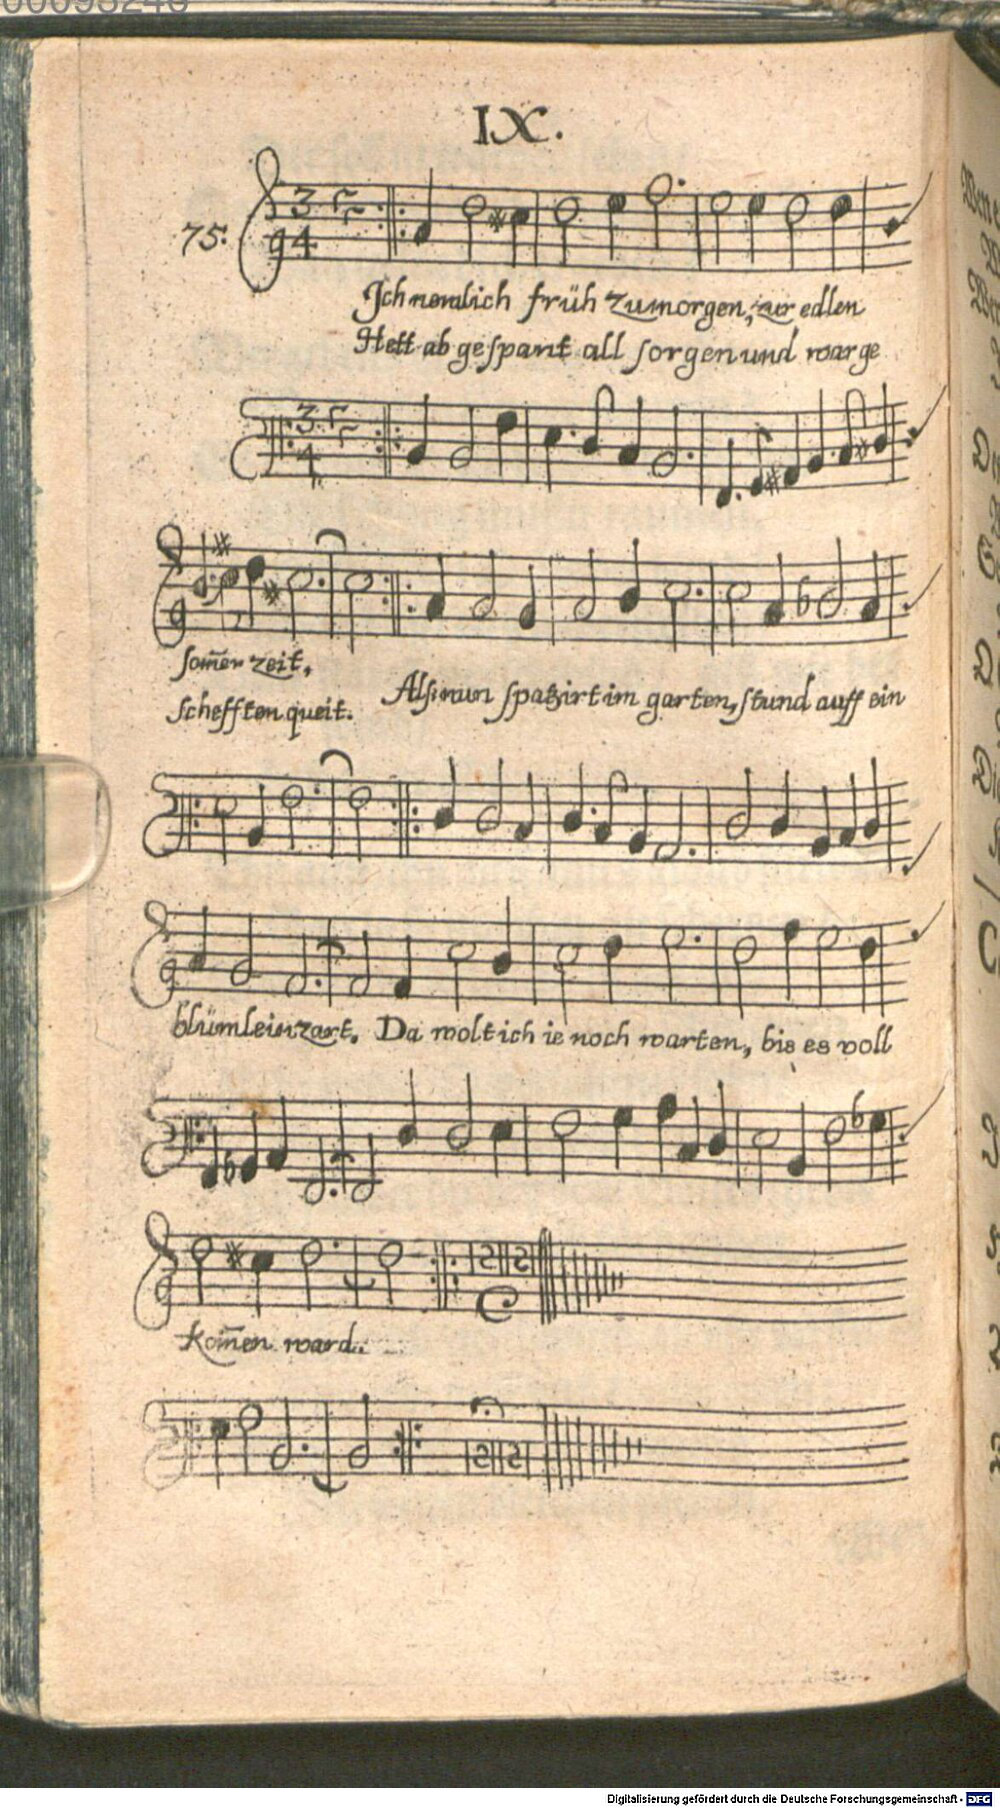 00098246
IX.
75.
3
4
Ich nemlich früh zu morgen, zur edlen
Hett ab gespant all sorgen und war ge
3
4
som̄er zeit,
schefften queit. Als nun spatzirt im garten, stund auff ein
blümlein zart. Da wolt ich ie noch warten, bis es voll
kom̄en ward.
Digitalisierung gefördert durch die Deutsche Forschungsgemeinschaft - DFG